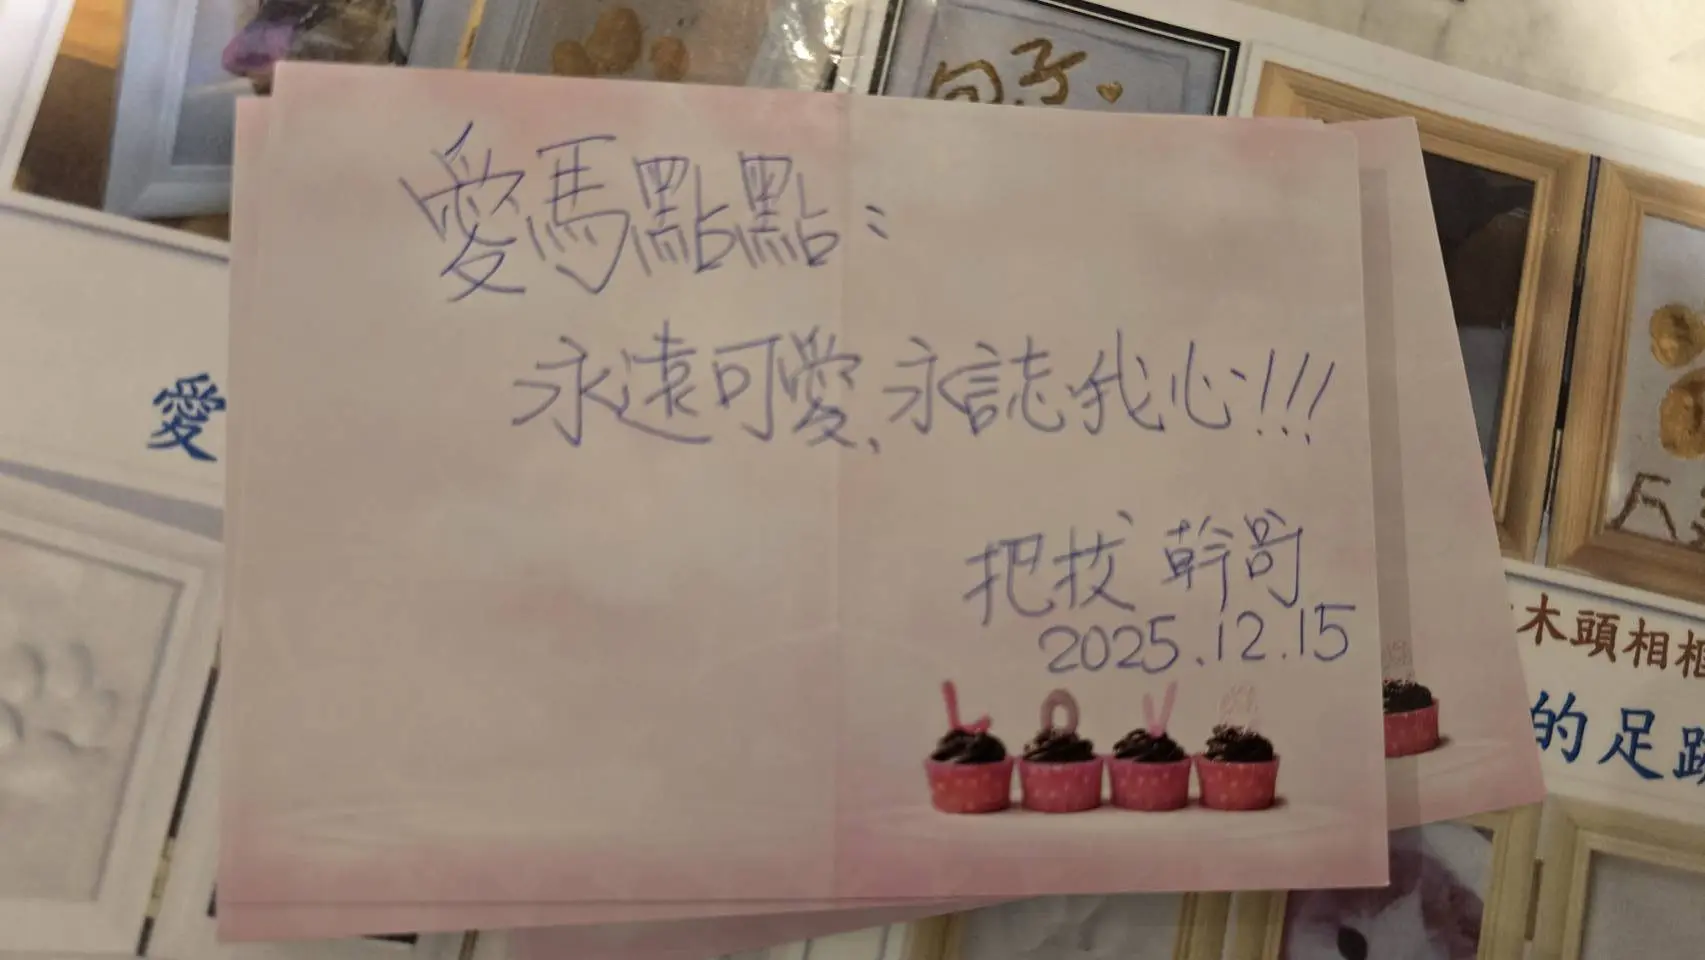 包子
愛馬點點：
永遠可愛、永誌我心!!!
愛
把拔 幹哥
2025.12.15
木頭相框
LOVE
的足跡